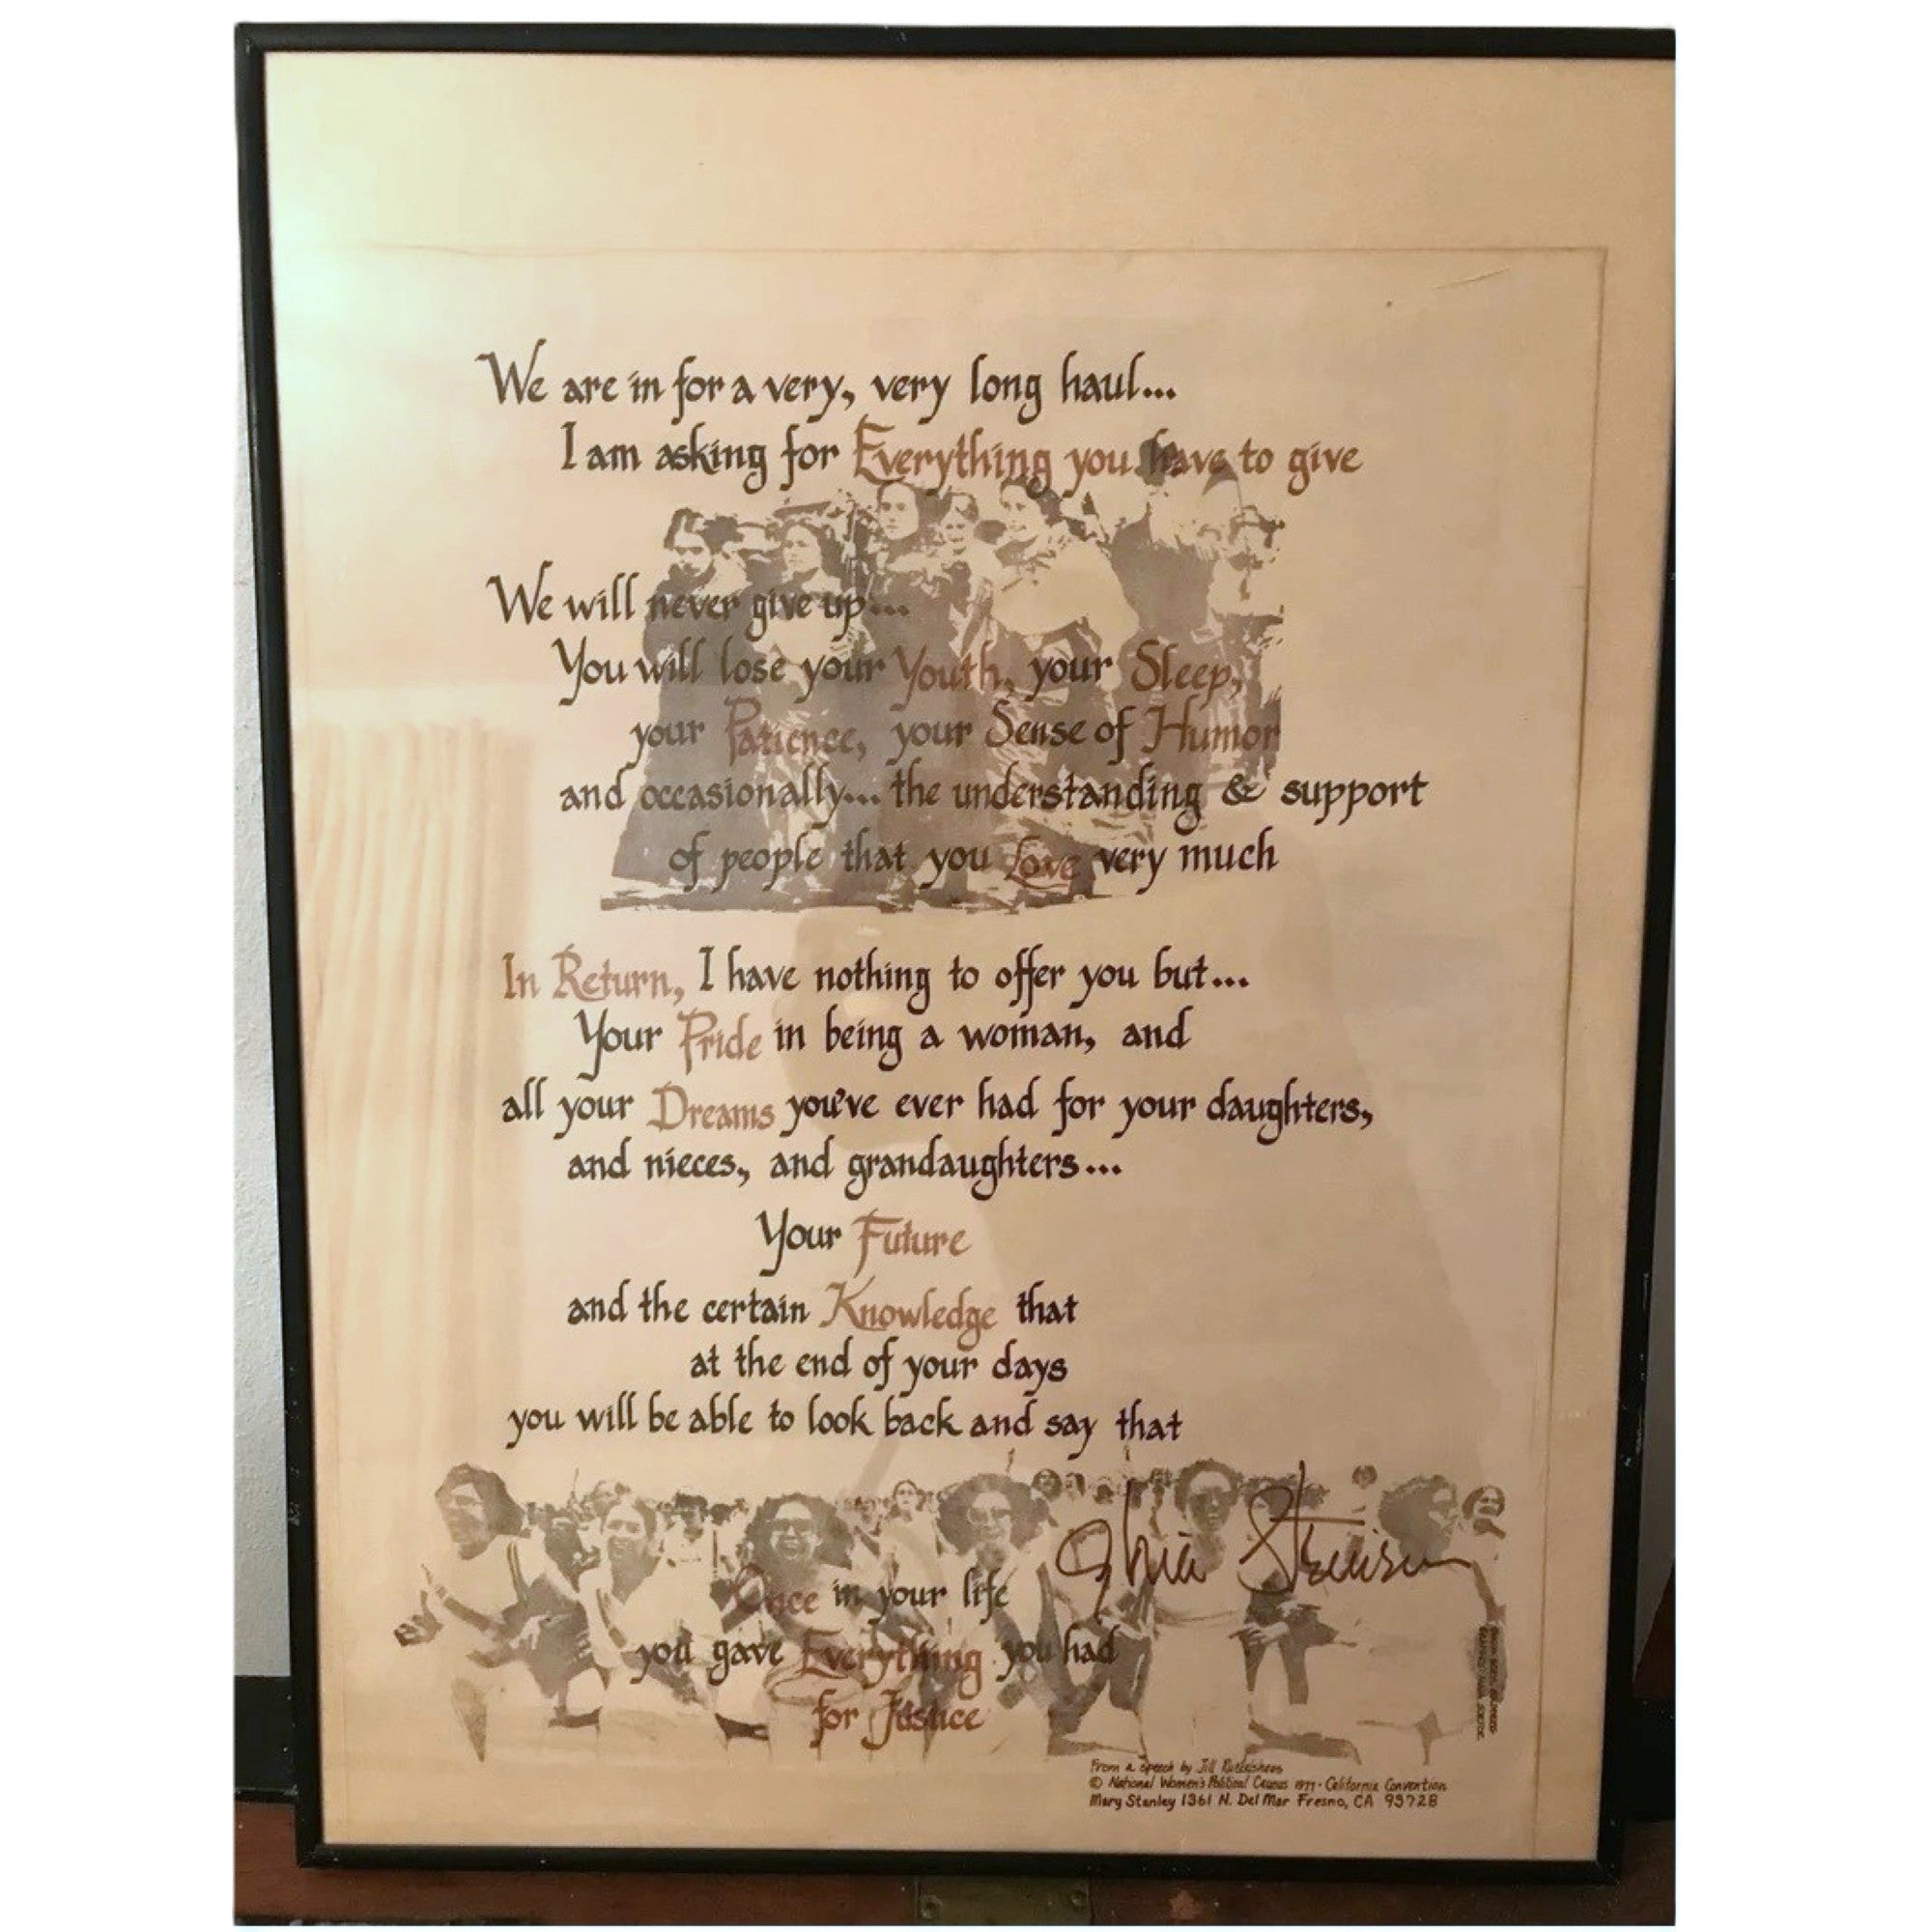 We are in for a very, very long haul...
I am asking for Everything you have to give
We will never give up...
You will lose your Youth, your Sleep,
your Patience, your Sense of Humor
and occasionally... the understanding & support
of people that you Love very much
In Return, I have nothing to offer you but...
Your Pride in being a woman, and
all your Dreams you've ever had for your daughters,
and nieces, and grandaughters...
Your Future
and the certain Knowledge that
at the end of your days
you will be able to look back and say that
Gloria Steinem
Once in your life
you gave Everything you had
for Justice
From a speech by Jill Ruckelshaus
© National Women's Political Caucus 1977 · California Convention
Mary Stanley 1361 N. Del Mar Fresno, CA 93728